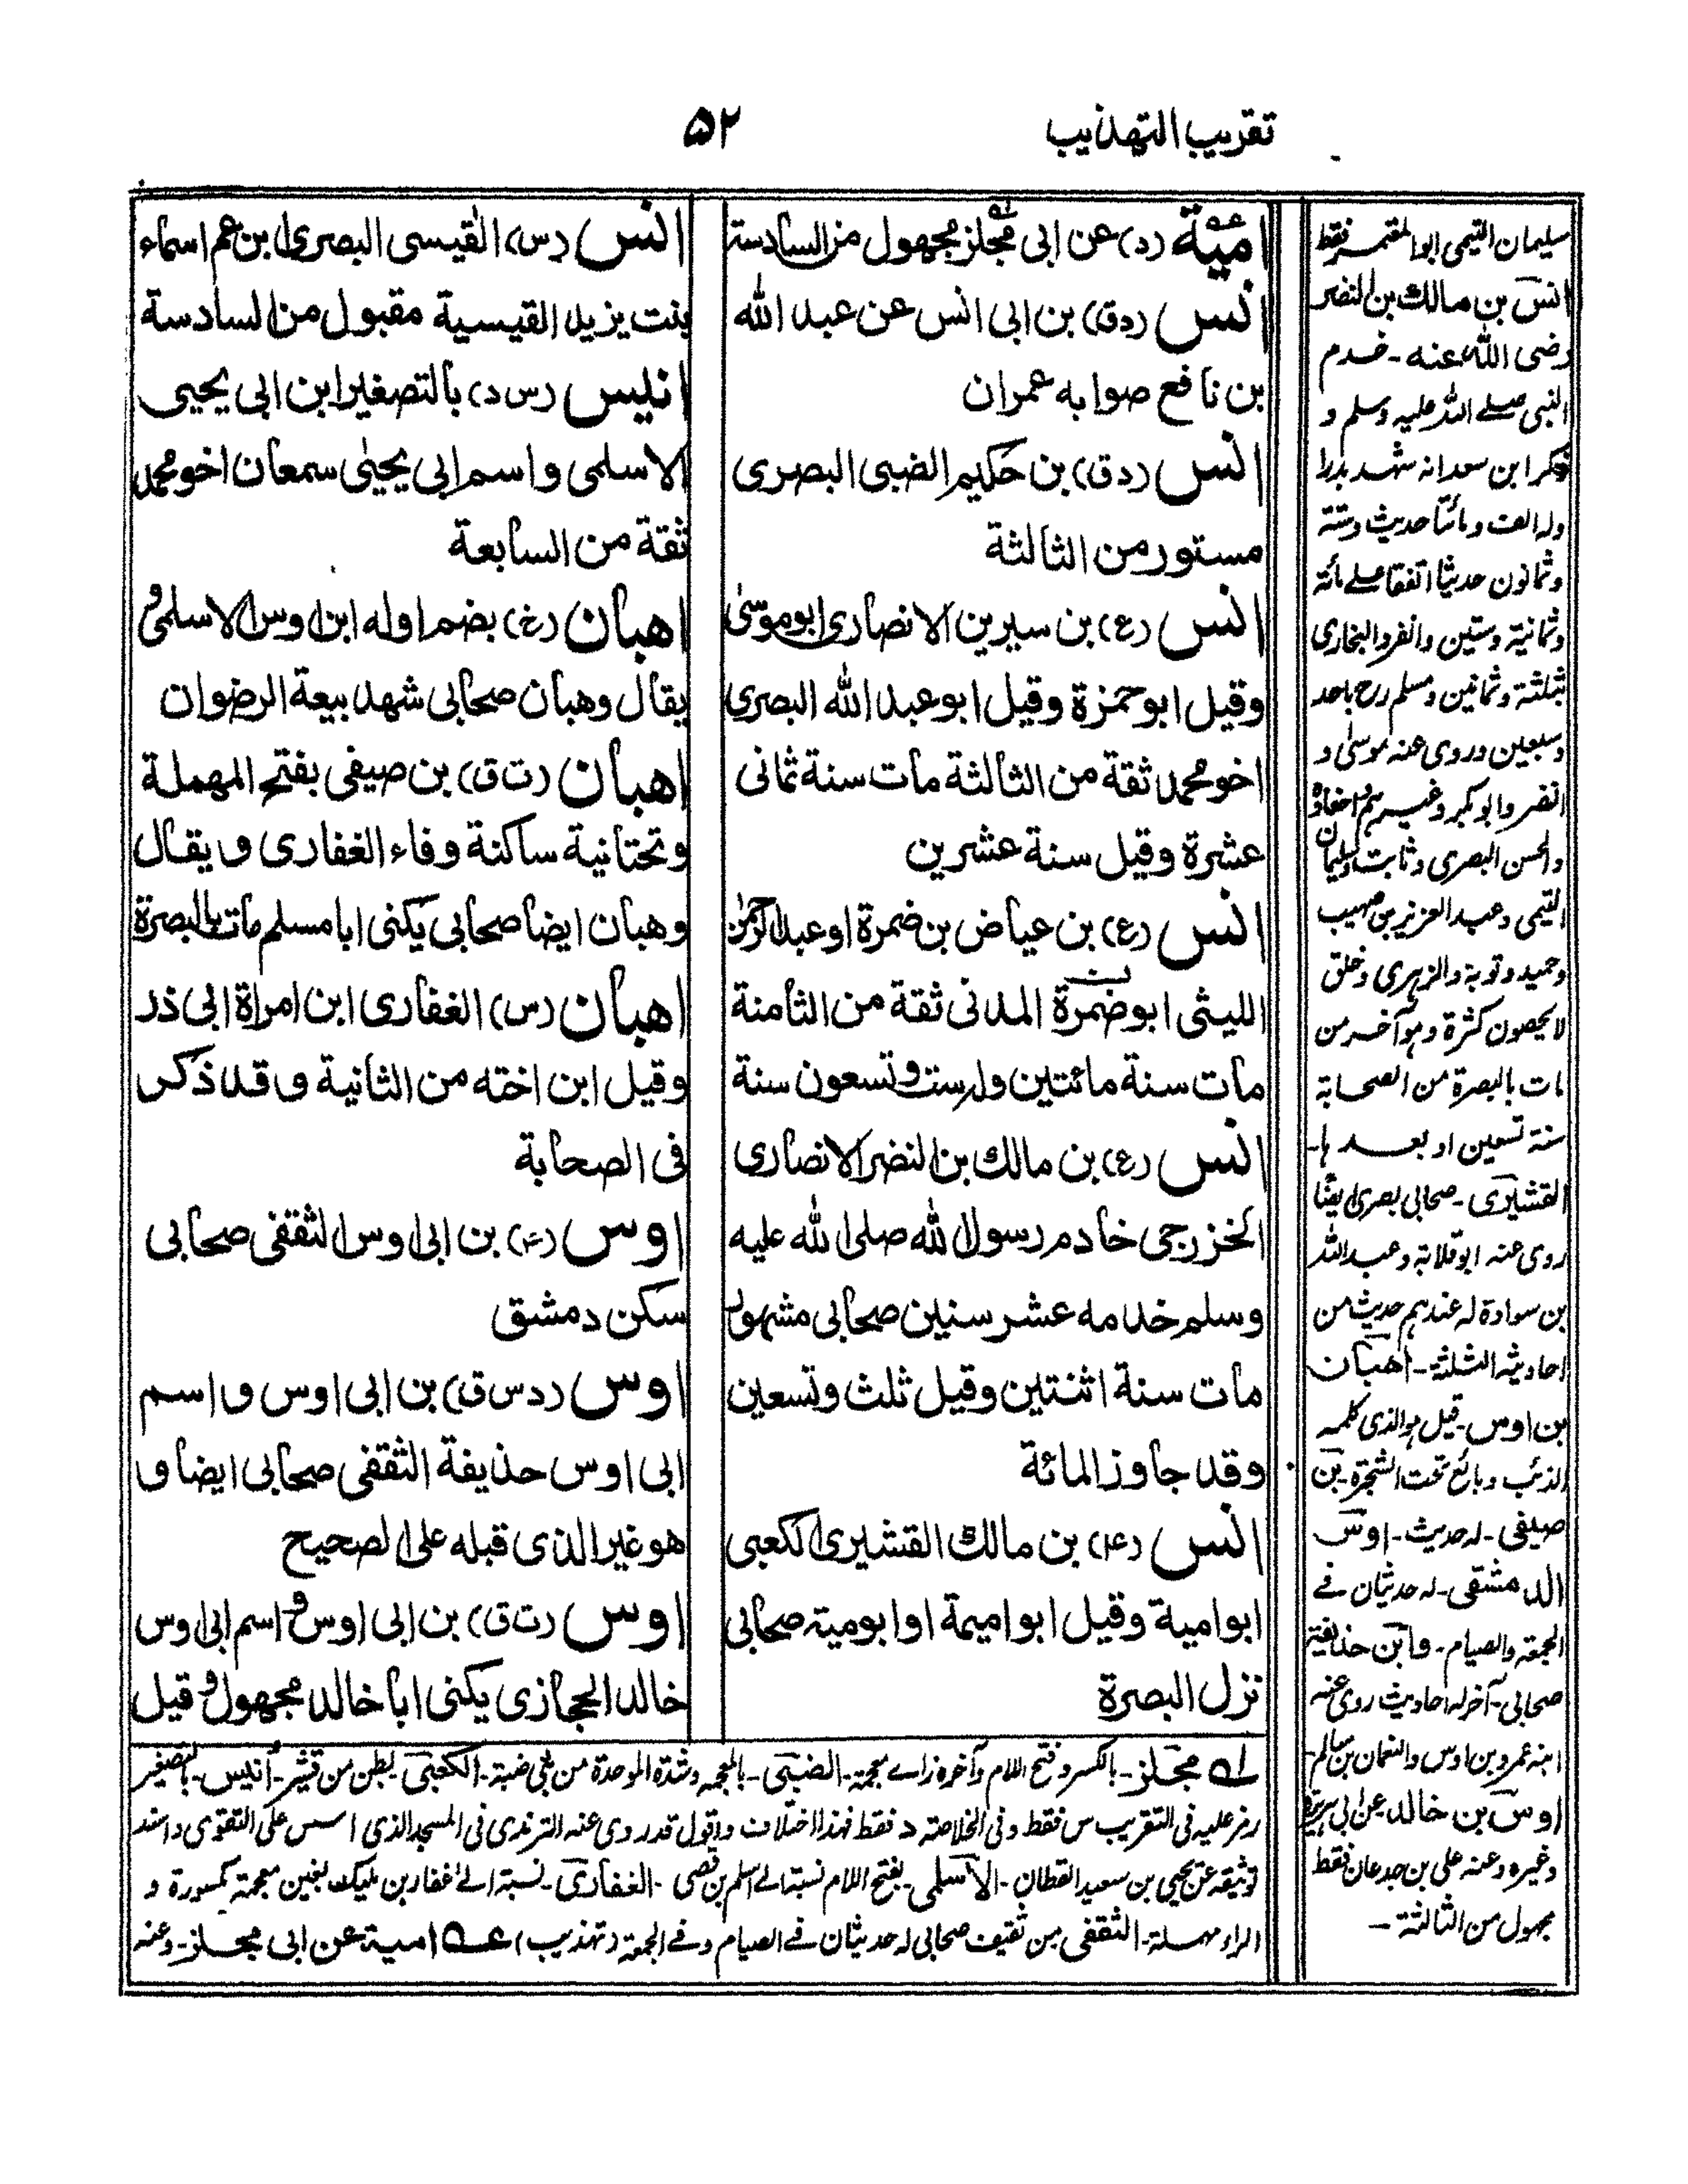 تقريب التهذيب
۵۲
امية (د) عن ابى مجلز مجهول من السادسة
انس (د ق) بن ابى انس عن عبد الله
بن نافع صوابه عمران
انس (د ق) بن حكيم الضبى البصرى
مستور من الثالثة
انس (ع) بن سيرين الانصارى ابو موسىٰ
وقيل ابو حمزة وقيل ابو عبد الله البصرى
اخو محمد ثقة من الثالثة مات سنة ثمانى
عشرة وقيل سنة عشرين
انس (ع) بن عياض بن ضمرة او عبد الرحمٰن
الليثى ابو ضمرة المدنى ثقة من الثامنة
مات سنة مائتين وله ست وتسعون سنة
انس (ع) بن مالك بن النضر الانصارى
الخزرجى خادم رسول الله صلى الله عليه
وسلم خدمه عشر سنين صحابى مشهور
مات سنة اثنتين وقيل ثلث وتسعين
وقد جاوز المائة
انس (۴) بن مالك القشيرى الكعبى
ابو امية وقيل ابو اميمة او ابو مية صحابى
نزل البصرة
انس (س) القيسى البصرى ابن عم اسماء
بنت يزيد القيسية مقبول من السادسة
انيس (س د) بالتصغير ابن ابى يحيى
الاسلمى واسم ابى يحيىٰ سمعان اخو محمد
ثقة من السابعة
اهبان (خ) بضم اوله ابن اوس الاسلمى و
يقال وهبان صحابى شهد بيعة الرضوان
اهبان (ت ق) بن صيفى بفتح المهملة
وتحتانية ساكنة وفاء الغفارى و يقال
وهبان ايضا صحابى يكنى ابا مسلم مات بالبصرة
اهبان (س) الغفارى ابن امراة ابى ذر
وقيل ابن اخته من الثانية و قد ذكر
فى الصحابة
اوس (۴) بن ابى اوس الثقفى صحابى
سكن دمشق
اوس (د س ق) بن ابى اوس و اسم
ابى اوس حذيفة الثقفى صحابى ايضا و
هو غير الذى قبله على الصحيح
اوس (ت ق) بن ابى اوس و اسم ابى اوس
خالد الحجازى يكنى ابا خالد مجهول و قيل
سليمان التيمى ابو المعتمر فقط
انس بن مالك بن النضر
رضى الله عنه - خدم
النبى صلے الله عليه وسلم و
ذكر ابن سعد انه شهد بدرا
وله الف و مائتا حديث وستة
وثمانون حديثا اتفقا علے مائة
وثمانية وستين وانفرد البخارى
بثلثة وثمانين ومسلم رح باحد
وسبعين وروى عنه موسىٰ و
النضر وابو بكر وغيرهم احفاده
والحسن البصرى وثابت وسليمان
التيمى وعبد العزيز بن صهيب
وحميد وتوبة والزهرى وخلق
لا يحصون كثرة وهو آخر من
مات بالبصرة من الصحابة
سنة تسعين او بعد ها-
القشيرى - صحابى بصرى ايضًا
روى عنه ابو قلابة وعبد الله
بن سوادة له عندهم حديث من
احاديثه الثلثة - اهبان
بن اوس - قيل هو الذى كلمه
الذئب وبائع تحت الشجرة - بن
صيفى - له حديث - اوس
الدمشقى - له حديثان فے
الجمعة والصيام - و ابن حذيفة
صحابى - آخر له احاديث روى عنه
ابنه عمرو بن اوس والنعمان بن سالم -
اوس بن خالد عن ابى هريرة
وغيره وعنه على بن جدعان فقط
مجهول من الثالثة -
له مجلز - بالكسر و فتح اللام وآخره زاے معجمة - الضبى - بالمعجمه وشدة الموحدة من بنى ضبة - الكعبى - بطن من قشير - انيس - بالتصغير
رمز عليه فى التقريب س فقط وفى الخلاصة د فقط فهذا اختلاف واقول قد روى عنه الترمذى فى المسجد الذى اسس على التقوى واسند
توثيقه عن يحيى بن سعيد القطان - الاسلمى - بفتح اللام نسبة الے اسلم بن قصى - الغفارى - نسبة الے غفار بن مليك بغين معجمة مكسورة و
الراء مهملة - الثقفى من ثقيف صحابى له حديثان فے الصيام وفے الجمعة (تهذيب) عه امية عن ابى مجلز - وعنه